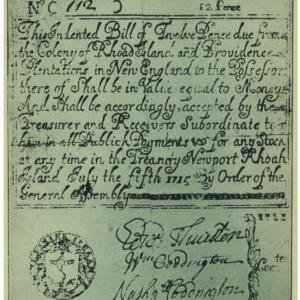 N° ( 112 )
12 Pence
This Indented Bill of Twelve Pence due from
the Colony of Rhoad Island and Providence
Plantations in New England to the Possessor
there of Shall be in Value equal to Money
And Shall be accordingly accepted by the
Treasurer and Receivers Subordinate to
him in all Publick Payments & for any Stock
at any time in the Treasury Newport Rhoad
Island July the fifth 1715 By Order of the
General Assembly
Thurston
Wm Coddington
Com
Nath Coddington